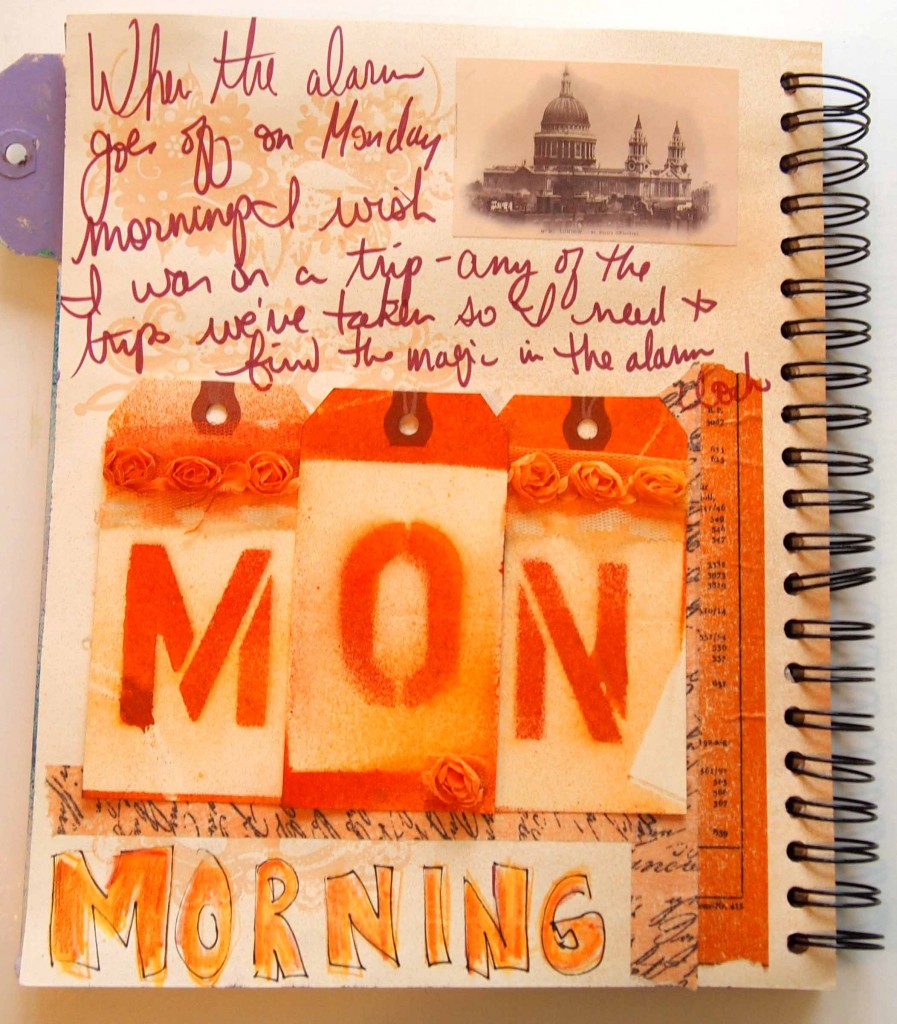 When the alarm
goes off on Monday
morning I wish
I was on a trip - any of the
trips we've taken so I need to
find the magic in the alarm
clock
MON
MORNING